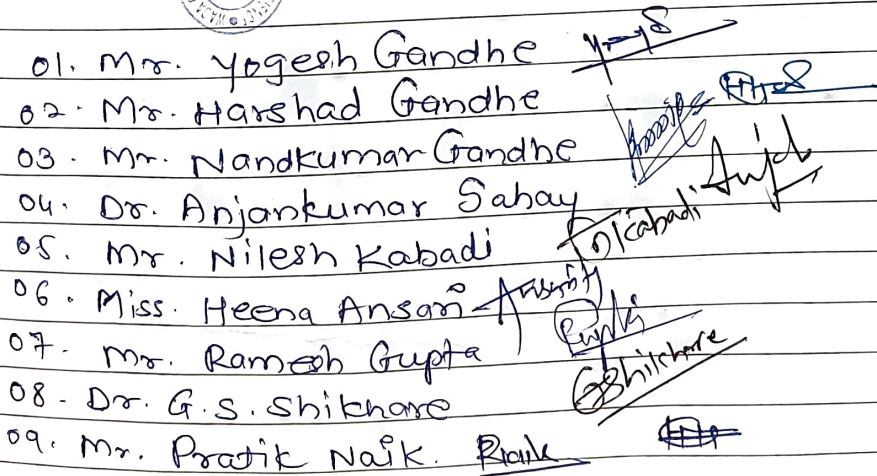 01. Mr. Yogesh Gandhe
02. Mr. Harshad Gandhe
03. Mr. Nandkumar Gandhe
04. Dr. Anjankumar Sahay
05. Mr. Nilesh Kabadi Nkabadi
06. Miss. Heena Ansari
07. Mr. Ramesh Gupta
08 - Dr. G.S. Shikhare GShikhare
09. Mr. Pratik Naik. PNaik